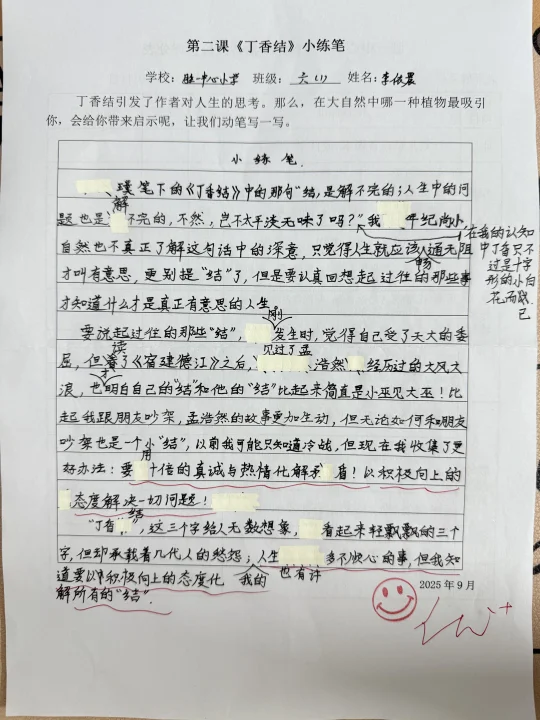 第二课《丁香结》小练笔
学校：中心小学 班级：六(1) 姓名：李依晨
丁香结引发了作者对人生的思考。那么，在大自然中哪一种植物最吸引
你，会给你带来启示呢，让我们动笔写一写。
小练笔
璞笔下的《丁香结》中的那句“结，是解不完的；人生中的问
题也是解不完的，不然，岂不太平淡无味了吗？”我年纪尚小
在我的认知中丁香只不过是十字形的小白花而已
自然也不真正了解这句话中的深意，只觉得人生就应该畅通无阻
才叫有意思，更别提“结”了，但是要认真回想起过往的那些事
才知道什么才是真正有意思的人生。
要说起过往的那些“结”，刚发生时，觉得自己受了天大的委
屈，但读了《宿建德江》之后，见过了孟浩然经历过的大风大
浪，也才明白自己的“结”和他的“结”比起来简直是小巫见大巫！比
起我跟朋友吵架，孟浩然的故事更加生动，但无论如何和朋友
吵架也是一个小“结”，以前我可能只知道冷战，但现在我收集了更
好办法：要用十倍的真诚与热情化解矛盾！以积极向上的
态度解决一切问题！
“丁香结”，这三个字给人无数想象，看起来轻飘飘的三个
字，但却承载着几代人的愁怨；人生也有许多不快心的事，但我知
道要以积极向上的态度化
解我的所有的“结”．
2025年9月